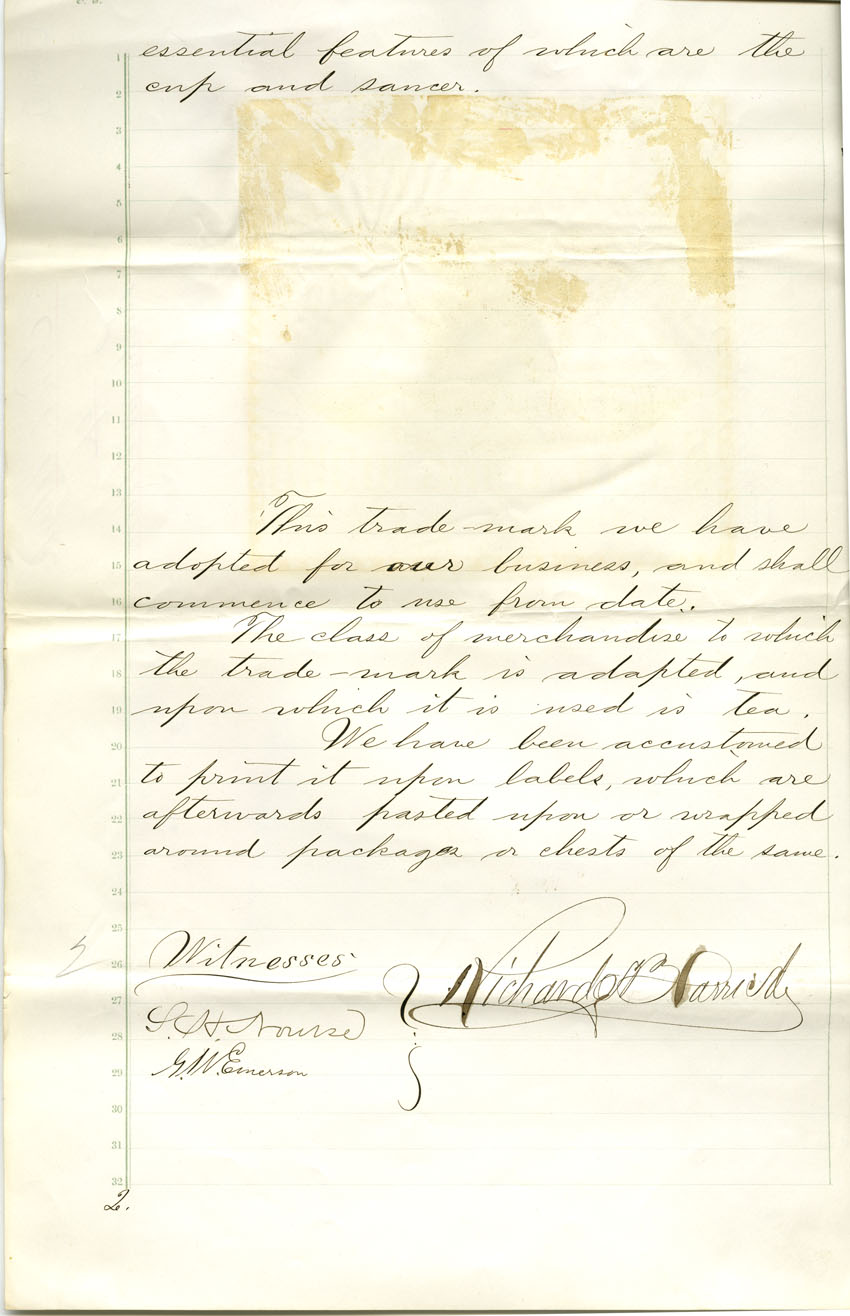 essential features of which are the
cup and saucer.
1
2
3
4
5
6
7
8
9
10
11
12
13
14
15
16
17
18
19
20
21
22
23
24
25
26
27
28
29
30
31
32
This trade-mark we have
adopted for our business, and shall
commence to use from date.
The class of merchandise to which
the trade-mark is adapted, and
upon which it is used is tea.
We have been accustomed
to print it upon labels, which are
afterwards pasted upon or wrapped
around packages or chests of the same.
Witnesses
Richard
S. H. Nourse
G. W. Emerson
2.